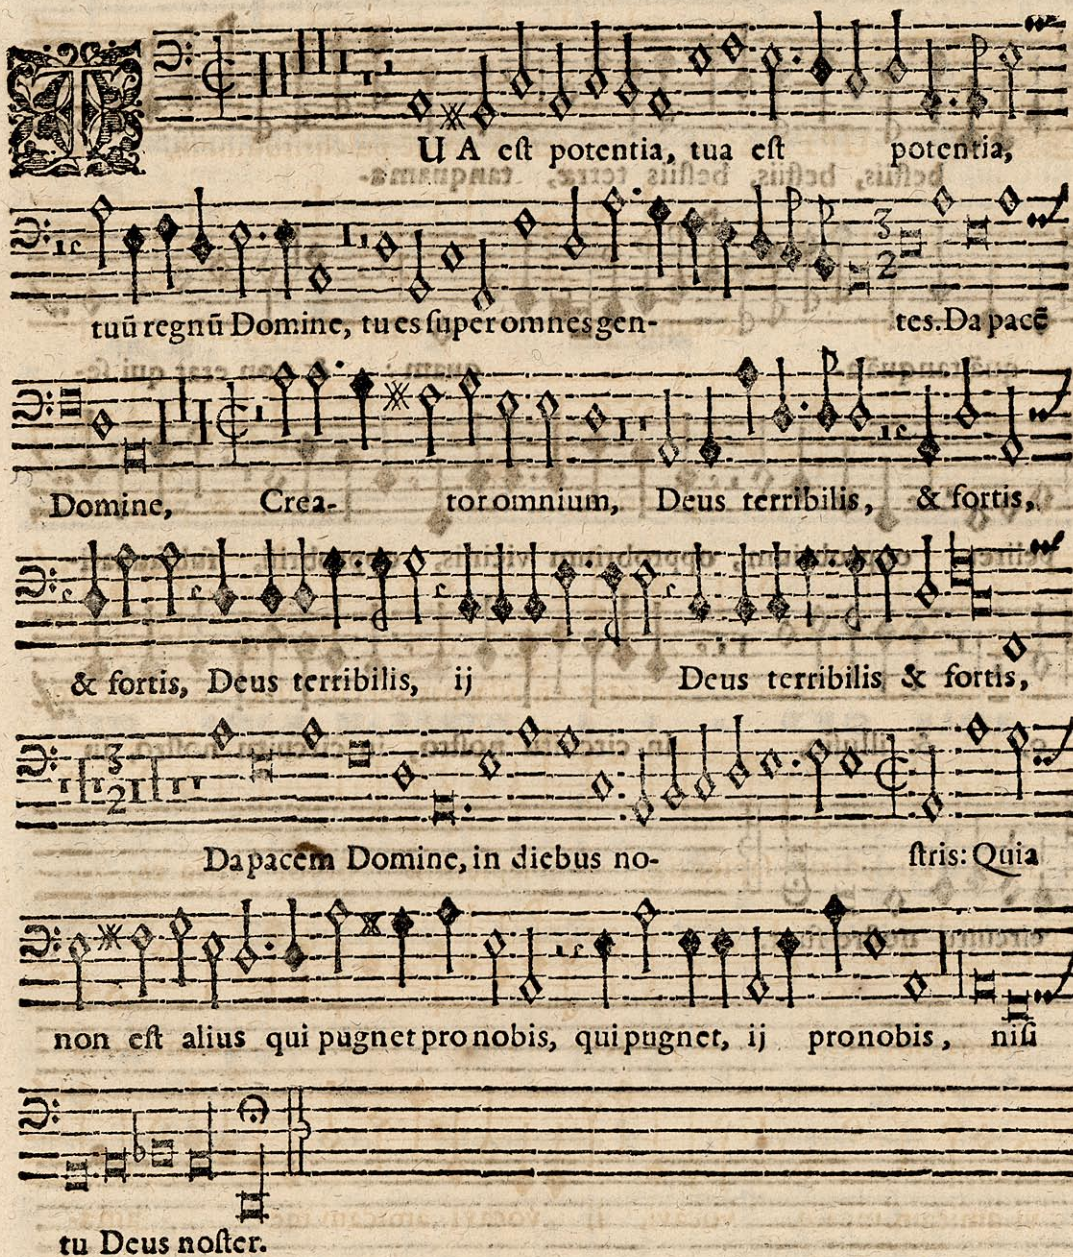 TUA est potentia, tua est potentia,
tuū regnū Domine, tu es super omnes gen- tes. Da pacē
Domine, Crea- tor omnium, Deus terribilis, & fortis,
& fortis, Deus terribilis, ij Deus terribilis & fortis,
Da pacem Domine, in diebus no- stris: Quia
non est alius qui pugnet pro nobis, qui pugnet, ij pro nobis, nisi
tu Deus noster.